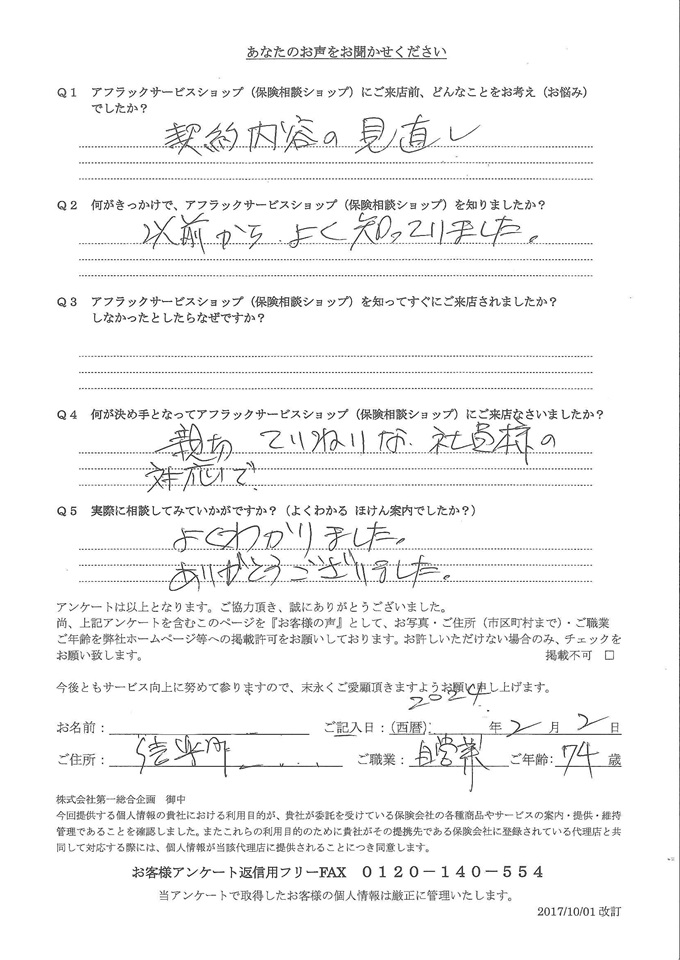 あなたのお声をお聞かせください
Q1 アフラックサービスショップ（保険相談ショップ）にご来店前、どんなことをお考え（お悩み）
でしたか？
契約内容の見直し
Q2 何がきっかけで、アフラックサービスショップ（保険相談ショップ）を知りましたか？
以前から よく知っていました。
Q3 アフラックサービスショップ（保険相談ショップ）を知ってすぐにご来店されましたか？
しなかったとしたらなぜですか？
Q4 何が決め手となってアフラックサービスショップ（保険相談ショップ）にご来店なさいましたか？
親切 ていねいな 社員様の
対応で
Q5 実際に相談してみていかがですか？（よくわかる ほけん案内でしたか？）
よくわかりました。
ありがとうございました。
アンケートは以上となります。ご協力頂き、誠にありがとうございました。
尚、上記アンケートを含むこのページを『お客様の声』として、お写真・ご住所（市区町村まで）・ご職業
ご年齢を弊社ホームページ等への掲載許可をお願いしております。お許しいただけない場合のみ、チェックを
お願い致します。 掲載不可 □
今後ともサービス向上に努めて参りますので、末永くご愛顧頂きますようお願い申し上げます。
お名前： ご記入日：(西暦) 2024 年 2 月 2 日
ご住所： ご職業： 自営業 ご年齢: 74 歳
株式会社第一総合企画 御中
今回提供する個人情報の貴社における利用目的が、貴社が委託を受けている保険会社の各種商品やサービスの案内・提供・維持
管理であることを確認しました。またこれらの利用目的のために貴社がその提携先である保険会社に登録されている代理店と共
同して対応する際には、個人情報が当該代理店に提供されることにつき同意します。
お客様アンケート返信用フリーFAX 0120－140－554
当アンケートで取得したお客様の個人情報は厳正に管理いたします。
2017/10/01 改訂